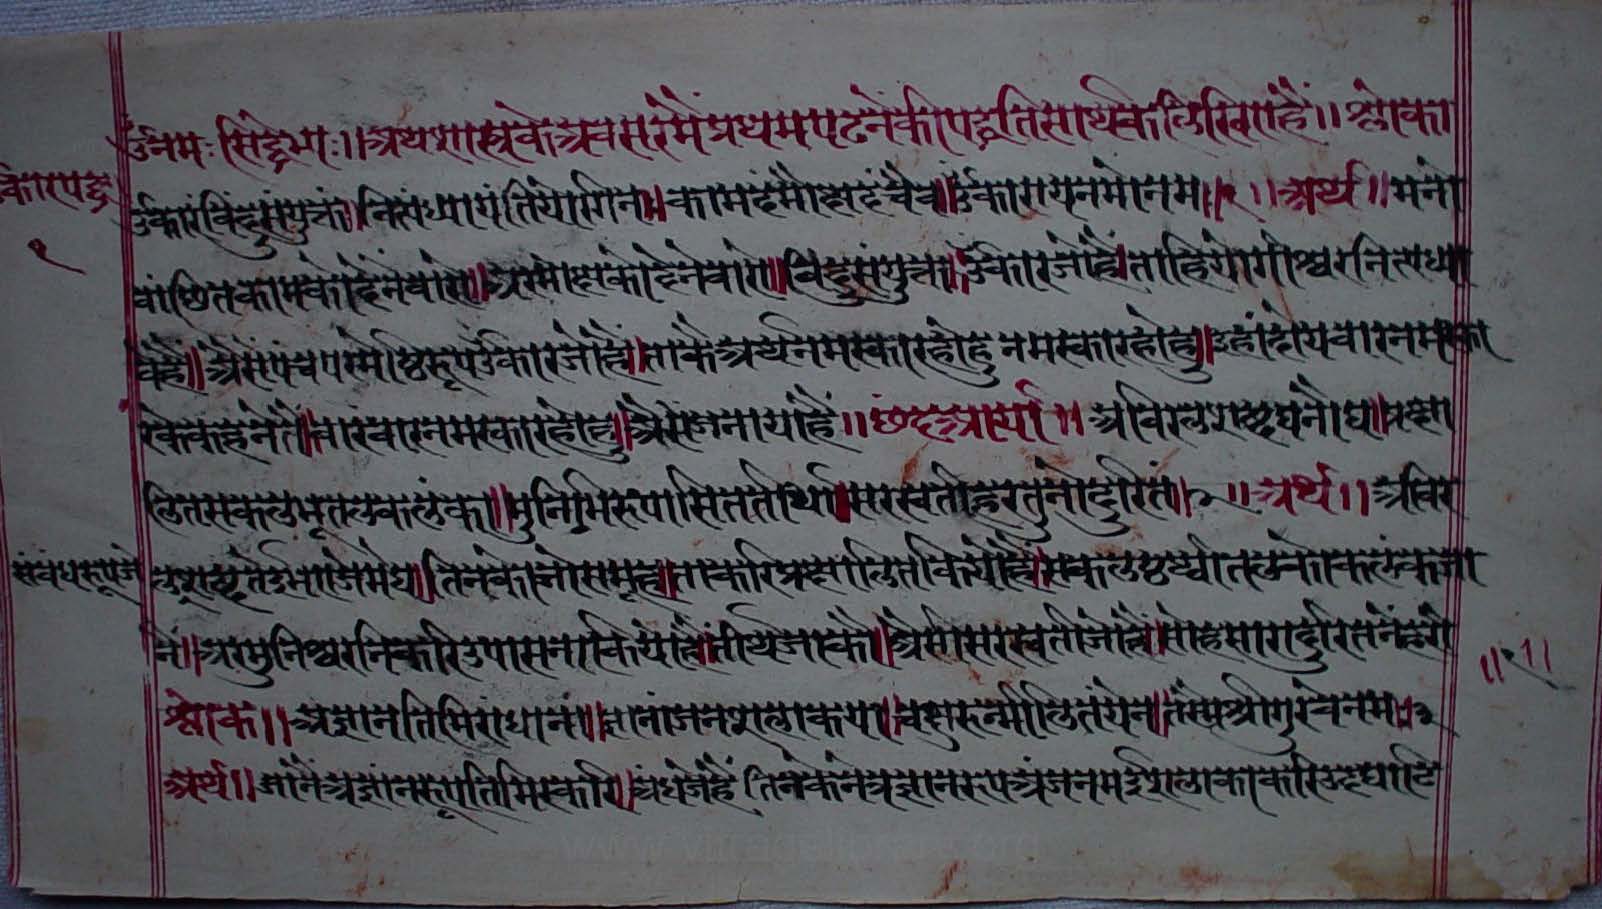 उँनमः सिद्धेभ्यः॥ अथशास्त्रकेअवसरमैंप्रथमपढनेंकीपद्धतिसार्थकलिखिएहैं॥ श्लोक।
उँकारंविंदुसंयुक्तं।नित्यंध्यायंतियोगिनः।कामदंमोक्षदंचैव।उँकारायनमोनमः॥१॥ अर्थ॥ मनो
वांछितकामकोदेनेवारो॥अरमोक्षकोदेनेवारो॥विंदुसंयुक्त।उँकारजोहै।ताहियोगीश्वरनित्यध्या
वेहैं॥अैसेंपंचपरमेष्ठिरूपउँकारजोहै।ताकेअर्थनमस्कारहोहु नमस्कारहोहु॥इहांदोयवारनमस्का
रकेकहनेतैं।वारंवारनमस्कारहोहु।अैसेंजनायाहैं॥छंदआर्या॥ अविरलशब्दघनौघ।प्रक्षा
लितसकलभूतलकलंका॥मुनिभिरुपासिततीर्था।सरस्वतीहरतुनोदुरितं॥२॥ अर्थ॥ अविर
संवंधरूपजे
लशब्दतेईभएजेमेघ।तिनकोजोसमूह।ताकरिप्रक्षालितकियोहै।सकलपृथ्वीतलकोकलंकजा
नें॥अरमुनिश्वरनिकरिउपासनाकियोहै।तीर्थजाको॥अैसीसरस्वतीजोहै।सोहमारादुरितनेंहरो
॥१॥
श्लोक॥अज्ञानतिमिरांधानां॥ज्ञानांजनशलाकया।चक्षुरुन्मीलितंयेन।तस्मैश्रीगुरवेनमः॥३
अर्थ॥ जानैंअज्ञांनरूपतिमिरकरि।अंधेजेहैं।तिनकेनेत्रज्ञानरूपअंजनमईशलाकाकरिउदघाटि